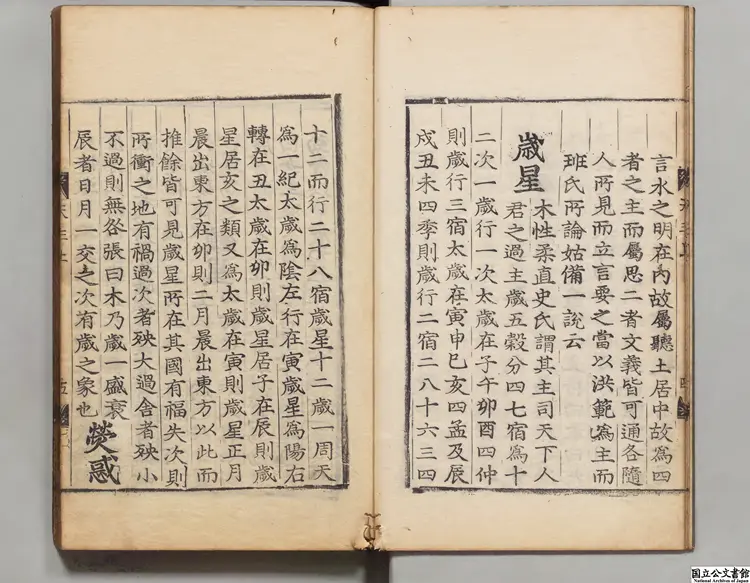 言水之明在內故屬聽土居中故爲四
者之主而屬思二者文義皆可通各隨
人所見而立言要之當以洪範爲主而
班氏所論姑備一說云
歲星
木性柔直史氏謂其主司天下人
君之過主歲五穀分四七宿爲十
二次一歲行一次太歲在子午卯酉四仲
則歲行三宿太歲在寅申巳亥四孟及辰
戌丑未四季則歲行二宿二八十六三四
十二而行二十八宿歲星十二歲一周天
爲一紀太歲爲陰左行在寅歲星爲陽右
轉在丑太歲在卯則歲星居子在辰則歲
星居亥之類又爲太歲在寅則歲星正月
晨出東方在卯則二月晨出東方以此而
推餘皆可見歲星所在其國有福失次則
所衝之地有禍過次者殃大過舍者殃小
不過則無咎張曰木乃歲一盛衰
辰者日月一交之次有歲之象也
熒惑
国立公文書館
National Archives of Japan